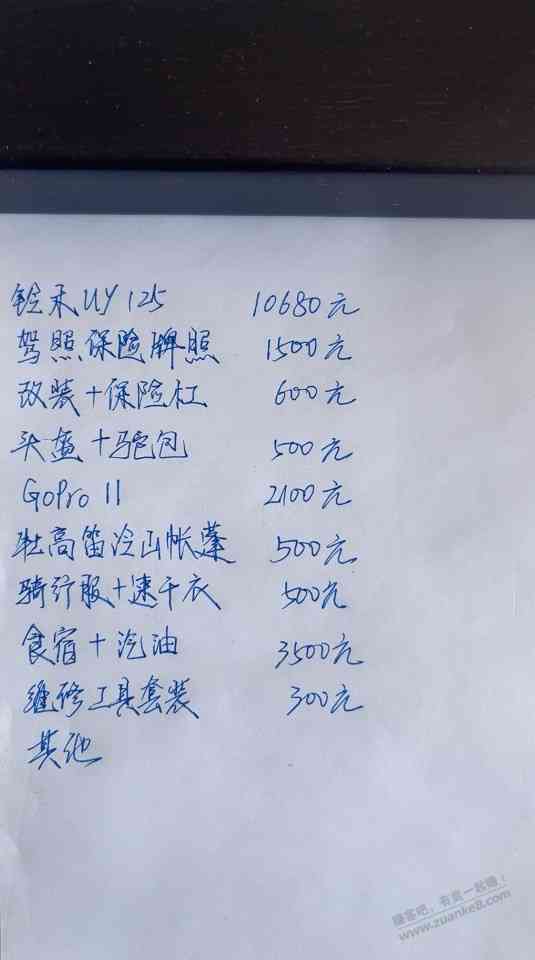 铃木UY125 10680元
驾照保险牌照 1500元
改装+保险杠 600元
头盔+驼包 500元
GoPro 11 2100元
牡高笛冷山帐蓬 500元
骑行服+速干衣 500元
食宿+汽油 3500元
维修工具套装 300元
其他
赚客吧,有奖一起赚!
www.zuanke8.com